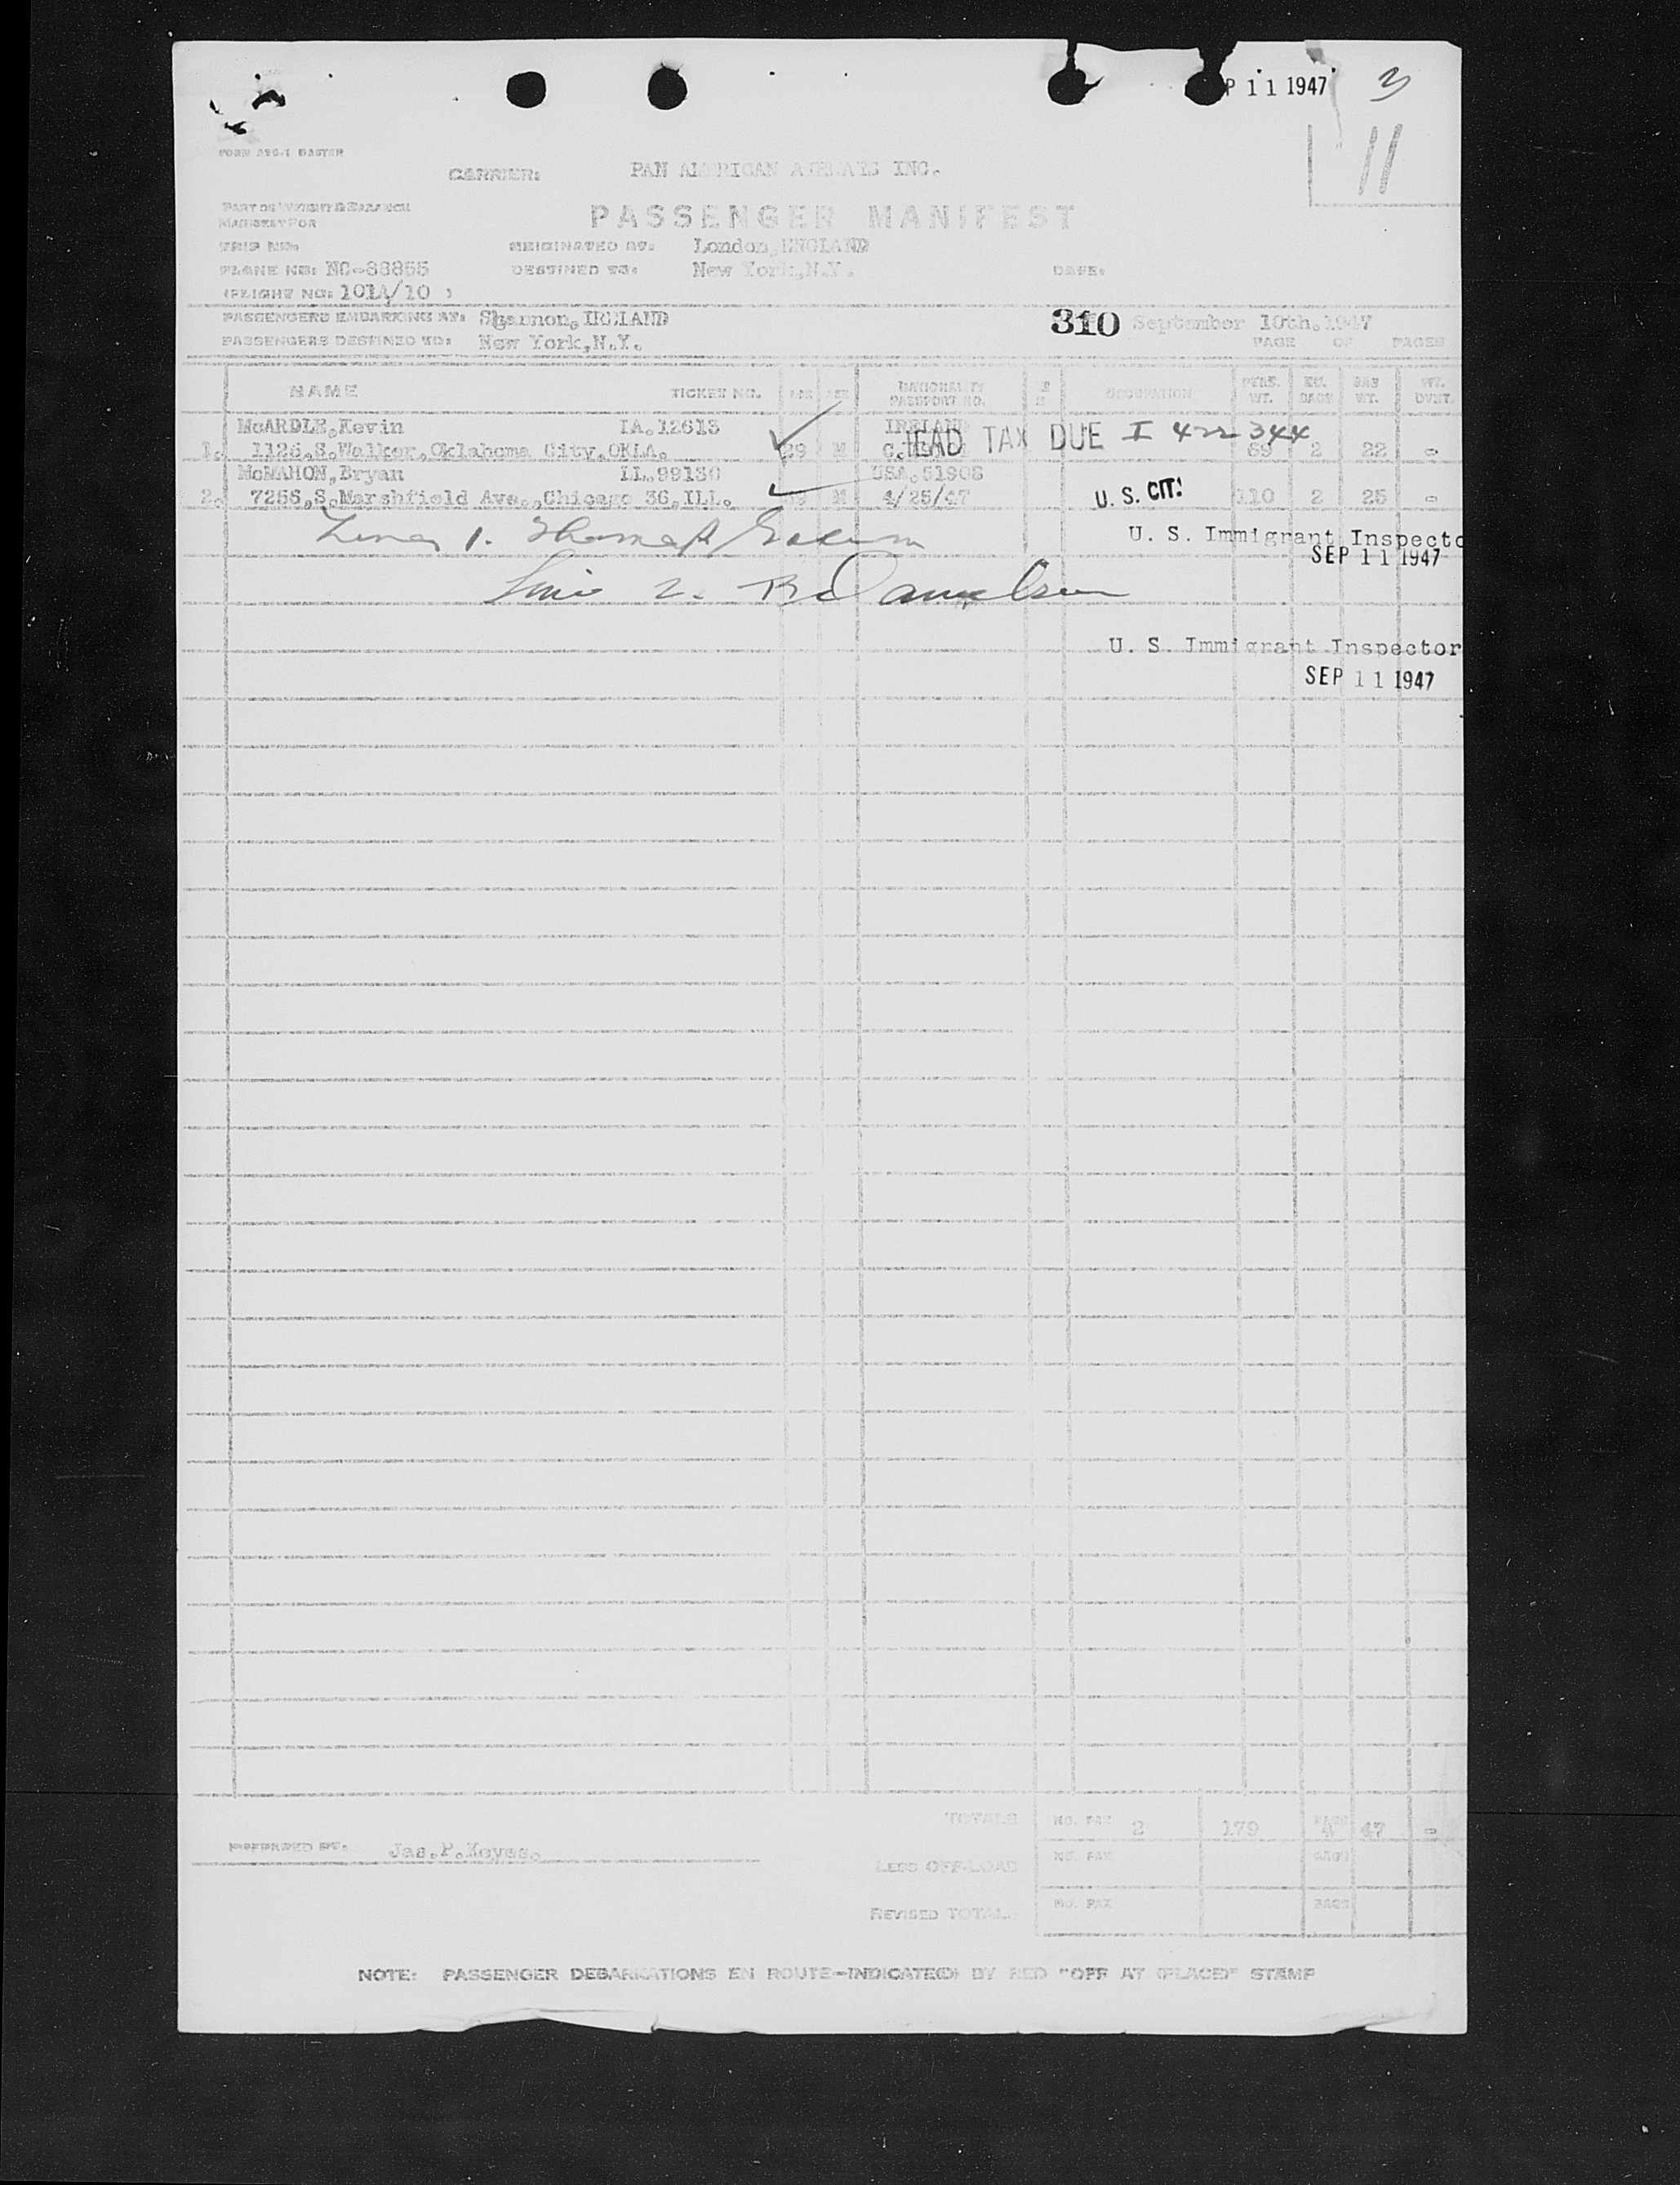 P 11 1947 3
11
CARRIER: PAN AMERICAN AIRWAYS INC.
PASSENGER MANIFEST
MANIFEST FOR
TRIP NO:
ORIGINATED AT: London, ENGLAND
PLANE NO: NC-88855
DESTINED TO: New York, N.Y.
DATE:
(FLIGHT NO: 101A/10 )
PASSENGERS EMBARKING AT: Shannon, IRELAND
310 September 10th, 1947
PASSENGERS DESTINED TO: New York, N.Y.
PAGE OF PAGES
NAME TICKET NO. AGE SEX NATIONALITY PASSPORT NO. OCCUPATION WT. NO. BAGS BAG WT. WT. OVWT.
McARDLE, Kevin IA.12613 IRELAND
HEAD TAX DUE I 422344
1. 1126, S. Walker, Oklahoma City, OKLA. M 69 2 22 -
McMAHON, Bryan IL.99130 USA.51908
2. 7256, S. Marshfield Ave., Chicago 36, ILL. M 4/25/47 U. S. CIT. 110 2 25 -
1. Thomas
U. S. Immigrant Inspecto
SEP 11 1947
2. Danielsen
U. S. Immigrant Inspector
SEP 11 1947
TOTALS NO. PAX 2 179 BAGS 4 47 -
PREPARED BY: Jas. P. Keyes.
LESS OFF-LOAD NO. PAX BAGS
REVISED TOTALS NO. PAX BAGS
NOTE: PASSENGER DEBARKATIONS EN ROUTE-INDICATE(D) BY RED "OFF AT (PLACE)" STAMP